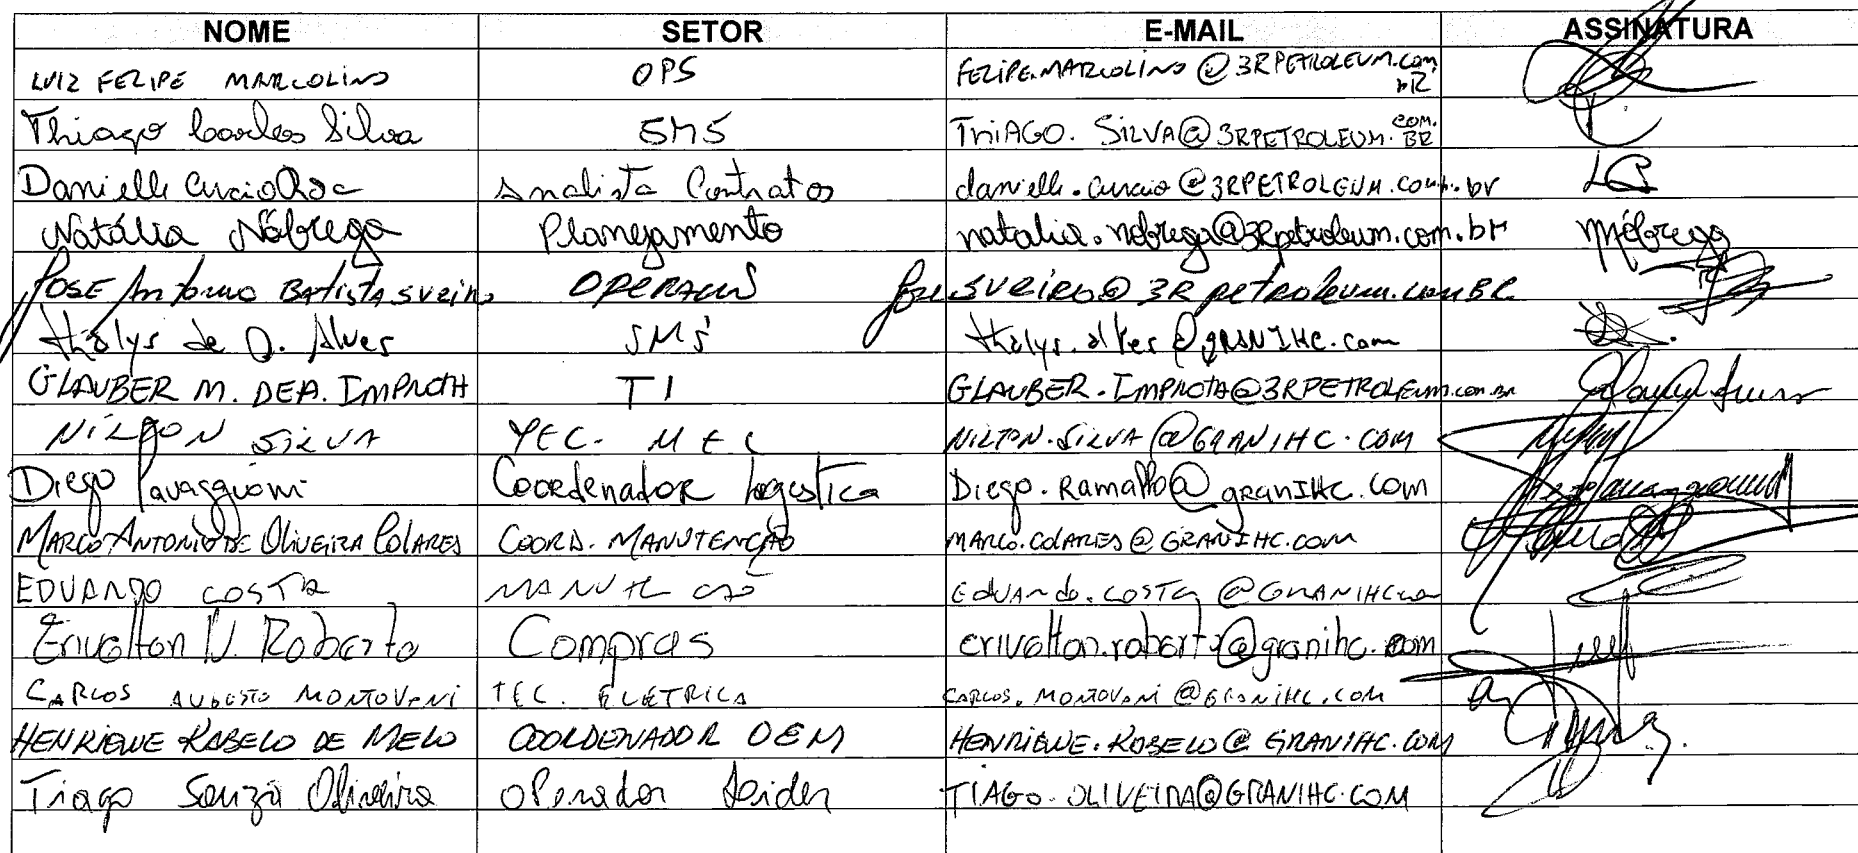 NOME SETOR E-MAIL ASSINATURA
LUIZ FELIPE MARCOLINO OPS FELIPE.MARCOLINO@3RPETROLEUM.COM.bR
Thiago Carlos Silva SMS THIAGO.SILVA@3RPETROLEUM.COM.BR
Danielle Curcio Analista Contratos danielle.curcio@3RPETROLEUM.com.br
Natália Nóbrega Planejamento natalia.nobrega@3Rpetroleum.com.br Nóbrega
JOSE Antonio BATISTA SUEIRO jose.SUEIRO@3Rpetroleum.com.BR
thalys de O. Alves SMS thalys.alves@gRANIHC.com
GLAUBER M. DE A. IMPROTA TI GLAUBER.IMPROTA@3RPETROLEUM.com.BR
NILTON SILVA TEC. MEC NILTON.SILVA@GRANIHC.COM
Diego Pavaggioni Coordenador Logistica Diego.Ramalho@gRANIHC.COM
MARCO ANTONIO DE OLIVEIRA COLARES COORD. MANUTENÇÃO MARCO.COLARES@GRANIHC.COM
EDUARDO COSTA EDUARDO.COSTA@GRANIHC.com
Erivelton N. Roberto Compras erivelton.roberto@granihc.com
CARLOS AUGUSTO MONTOVANI TEC. ELÉTRICA CARLOS.MONTOVANI@GRANIHC.COM
HENRIQUE RABELO DE MELO COORDENADOR OEM HENRIQUE.RABELO@GRANIHC.COM
Tiago Souza Oliveira Operador TIAGO.OLIVEIRA@GRANIHC.COM